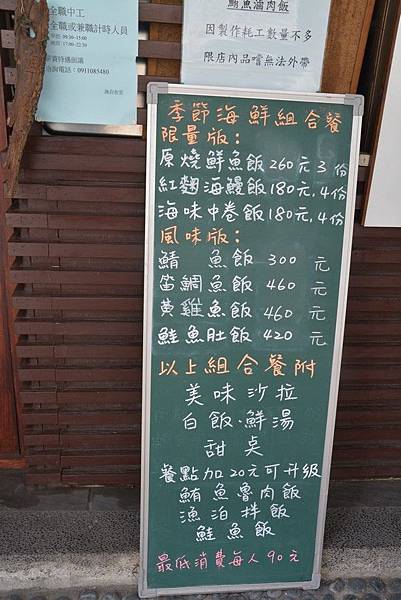 全職中工
全職或兼職計時人員
資待遇面議
洽詢電話:0911085480
鮪魚滷肉飯
因製作耗工數量不多
限店內品嚐無法外帶
季節海鮮組合餐
限量版:
原燒鮮魚飯260元3份
紅麴海鰻飯180元.4份
海味中卷飯180元.4份
風味版:
鯖 魚飯 300 元
笛鯛魚飯 460 元
黃雞魚飯 460 元
鮭魚肚飯 420 元
以上組合餐附
美味沙拉
白飯.鮮湯
甜桌
餐點加20元可升級
鮪魚魯肉飯
漁泊拌飯
鮭魚飯
最低消費每人90元